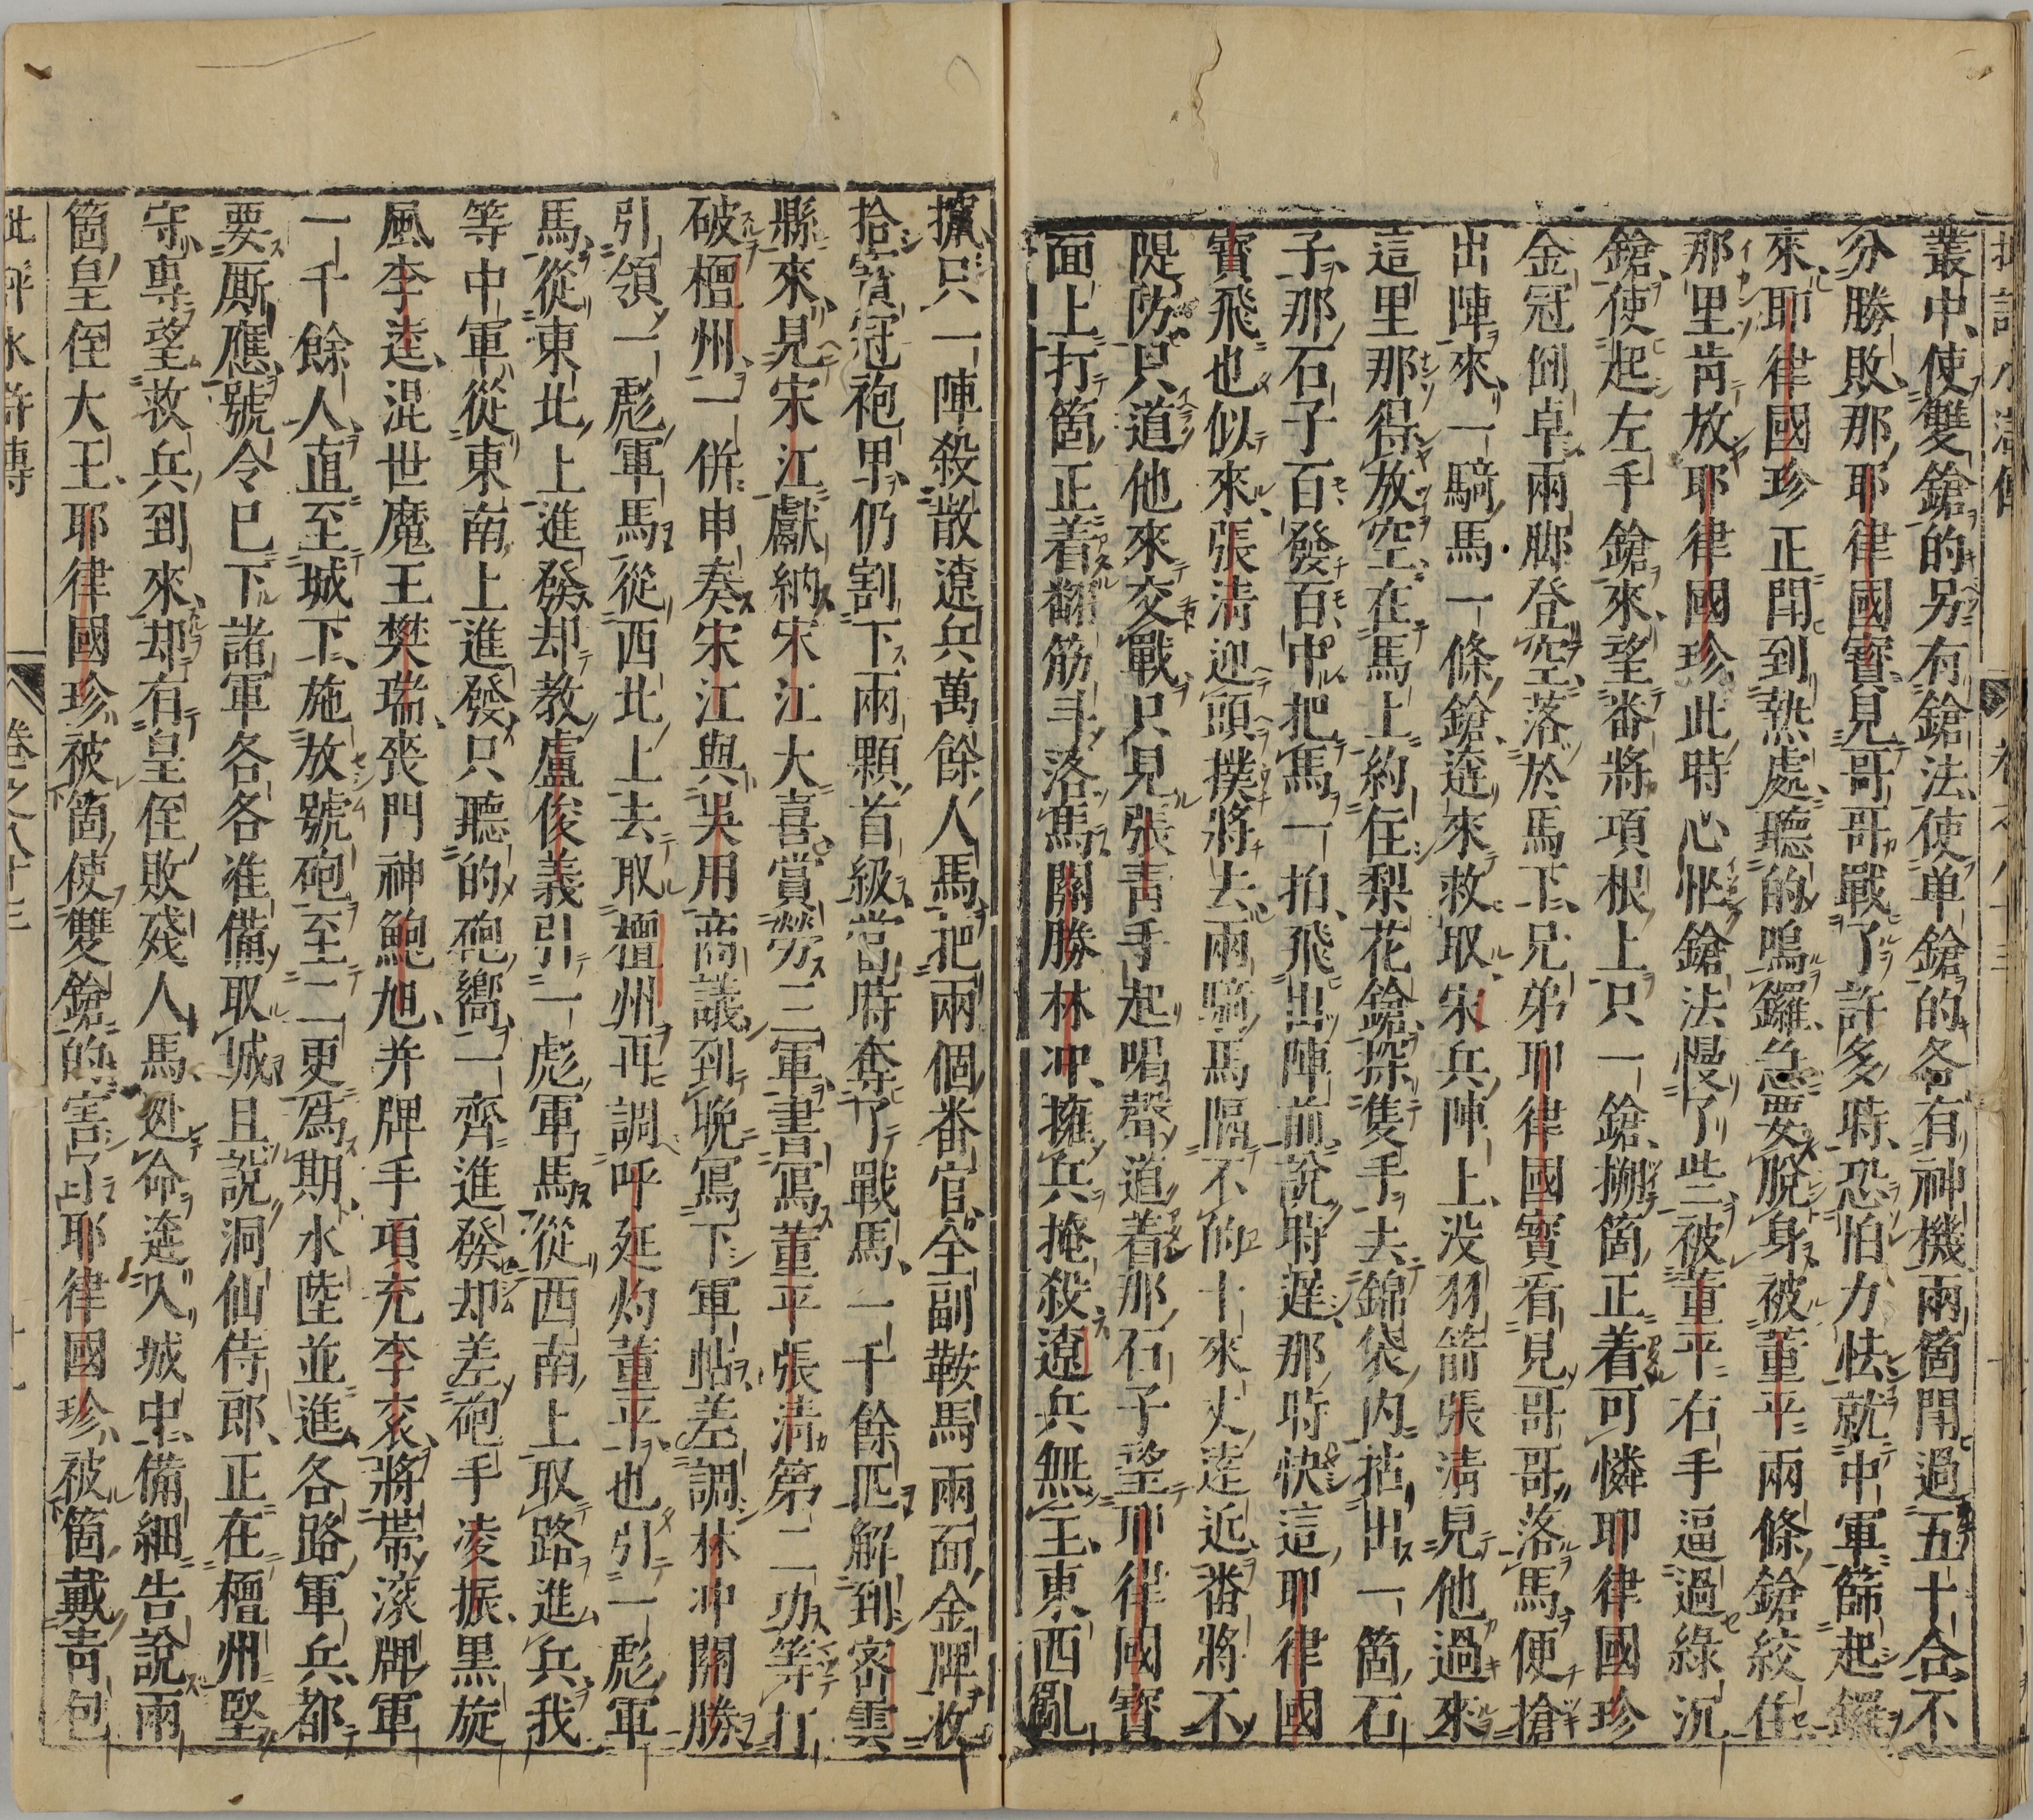 叢中、使雙鎗的另有鎗法、使单鎗的各有神機、兩箇閗過五十合、不
分勝敗、那耶律國寳、見哥哥戰了許多時、恐怕力怯、就中軍篩起鑼
來、耶律國珍正閗到熱處、聽的鳴鑼、急要脫身、被董平兩條鎗絞住、
那里肯放、耶律國珍此時心忙、鎗法慢了些、被董平右手逼過綠沉
鎗、使起左手鎗來、望番將項根上只一鎗、搠箇正着、可憐耶律國珍
金冠倒卓、兩脚登空、落於馬下、兄弟耶律國寳看見哥哥落馬、便搶
出陣來、一騎馬一條鎗、逩來救取、宋兵陣上、没羽箭張清見他過來、
這里那得放空、在馬上約住梨花鎗、探隻手去錦袋內掂出一箇石
子、那石子百發百中、把馬一拍、飛出陣前、說時遲、那時快、這耶律國
寳飛也似來、張清迎頭撲將去、兩騎馬隔不的十來丈逺近、番將不
隄防、只道他來交戰、只見張青手起、喝聲道着、那石子望耶律國寳
面上打箇正着、翻筋斗落馬、關勝林冲、擁兵掩殺、遼兵無主、東西亂
攛、只一陣、殺散遼兵萬餘人馬、把兩個番官全副鞍馬、兩面金牌、收
拾寳冠袍甲、仍割下兩顆首級、當時奪了戰馬一千餘匹、解到密雲
縣來、見宋江獻納、宋江大喜、賞勞三軍、書寫董平張清第二功、等打
破檀州、一併申奏、宋江與吳用商議、到晩寫下軍帖、差調林冲關勝
引領一彪軍馬、從西北上去取檀州、再調呼延灼董平、也引一彪軍
馬、從東北上進發、却教盧俊義引一彪軍馬、從西南上取路進兵、我
等中軍、從東南上進發、只聽的砲嚮、一齊進發、却差砲手凌振、黒旋
風李逵、混世魔王樊瑞、䘮門神鮑旭、并牌手項充李衮、將帯滾牌軍
一千餘人、直至城下、施放號砲、至二更爲期、水陸並進、各路軍兵、都
要厮應、號令已下、諸軍各各准備取城、且說洞仙侍郎、正在檀州堅
守、專望救兵到來、却有皇侄敗殘人馬、処命逩入城中、備細告說、兩
箇皇侄大王、耶律國珍、被箇使雙鎗的害了、耶律國珍、被箇戴青包
批評水滸傳 卷之八十三